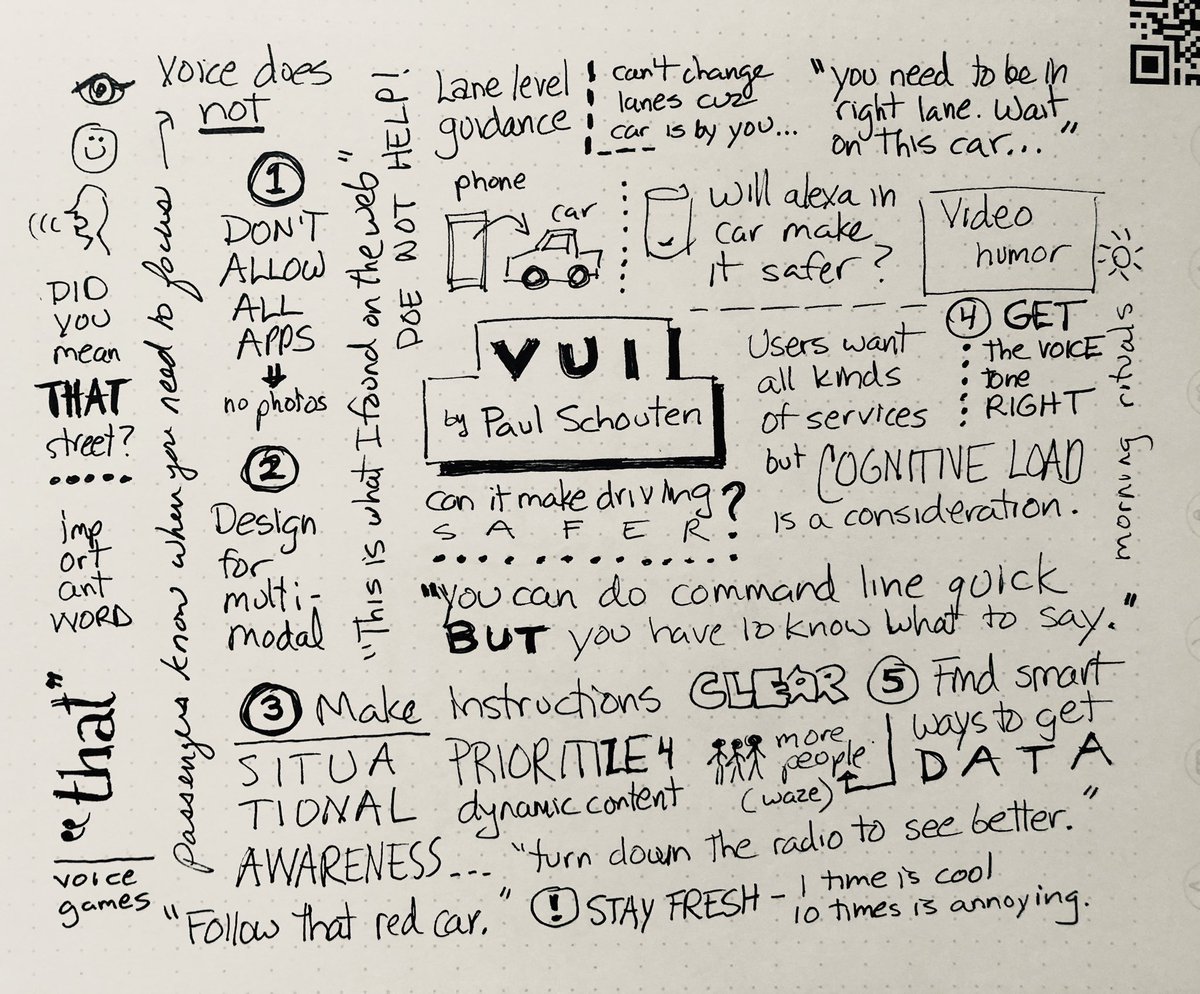 Voice does
not
Passengers know when you need to focus
DID
YOU
mean
THAT
street?
imp
ort
ant
WORD
"that"
voice
games
1
DON'T
ALLOW
ALL
APPS
no photos
2
Design
for
multi-
modal
"This is what I found on the web"
DOE NOT HELP!
Lane level
guidance
can't change
lanes cuz
car is by you...
"you need to be in
right lane. Wait
on this car..."
phone
car
Will alexa in
car make
it safer?
Video
humor
morning rituals
VUI
by Paul Schouten
can it make driving
SAFER?
Users want
all kinds
of services
but COGNITIVE LOAD
is a consideration.
4 GET
the VOICE
tone
RIGHT
"you can do command line quick
BUT you have to know what to say."
3 Make Instructions CLEAR
SITUA
TIONAL
AWARENESS...
PRIORITIZE 4
dynamic content
more
people
(waze)
5 Find smart
ways to get
DATA
"turn down the radio to see better."
"Follow that red car."
! STAY FRESH - 1 time is cool
10 times is annoying.